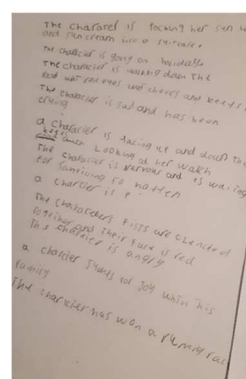 The character is Packing her sun
and suncream into a suitcase
the character is going on holiday
The character is walking down the
Road with red eyes and cheeks and
The character is sad and has been
crying
a character is Pacing up and down the
Looking at her watch
The character is nervous and is waiting
For something to happen
a character is
The characters Fists are clenched
together and their Face is red
The character is angry
a character Jumps for Joy when his
family
The character has won a